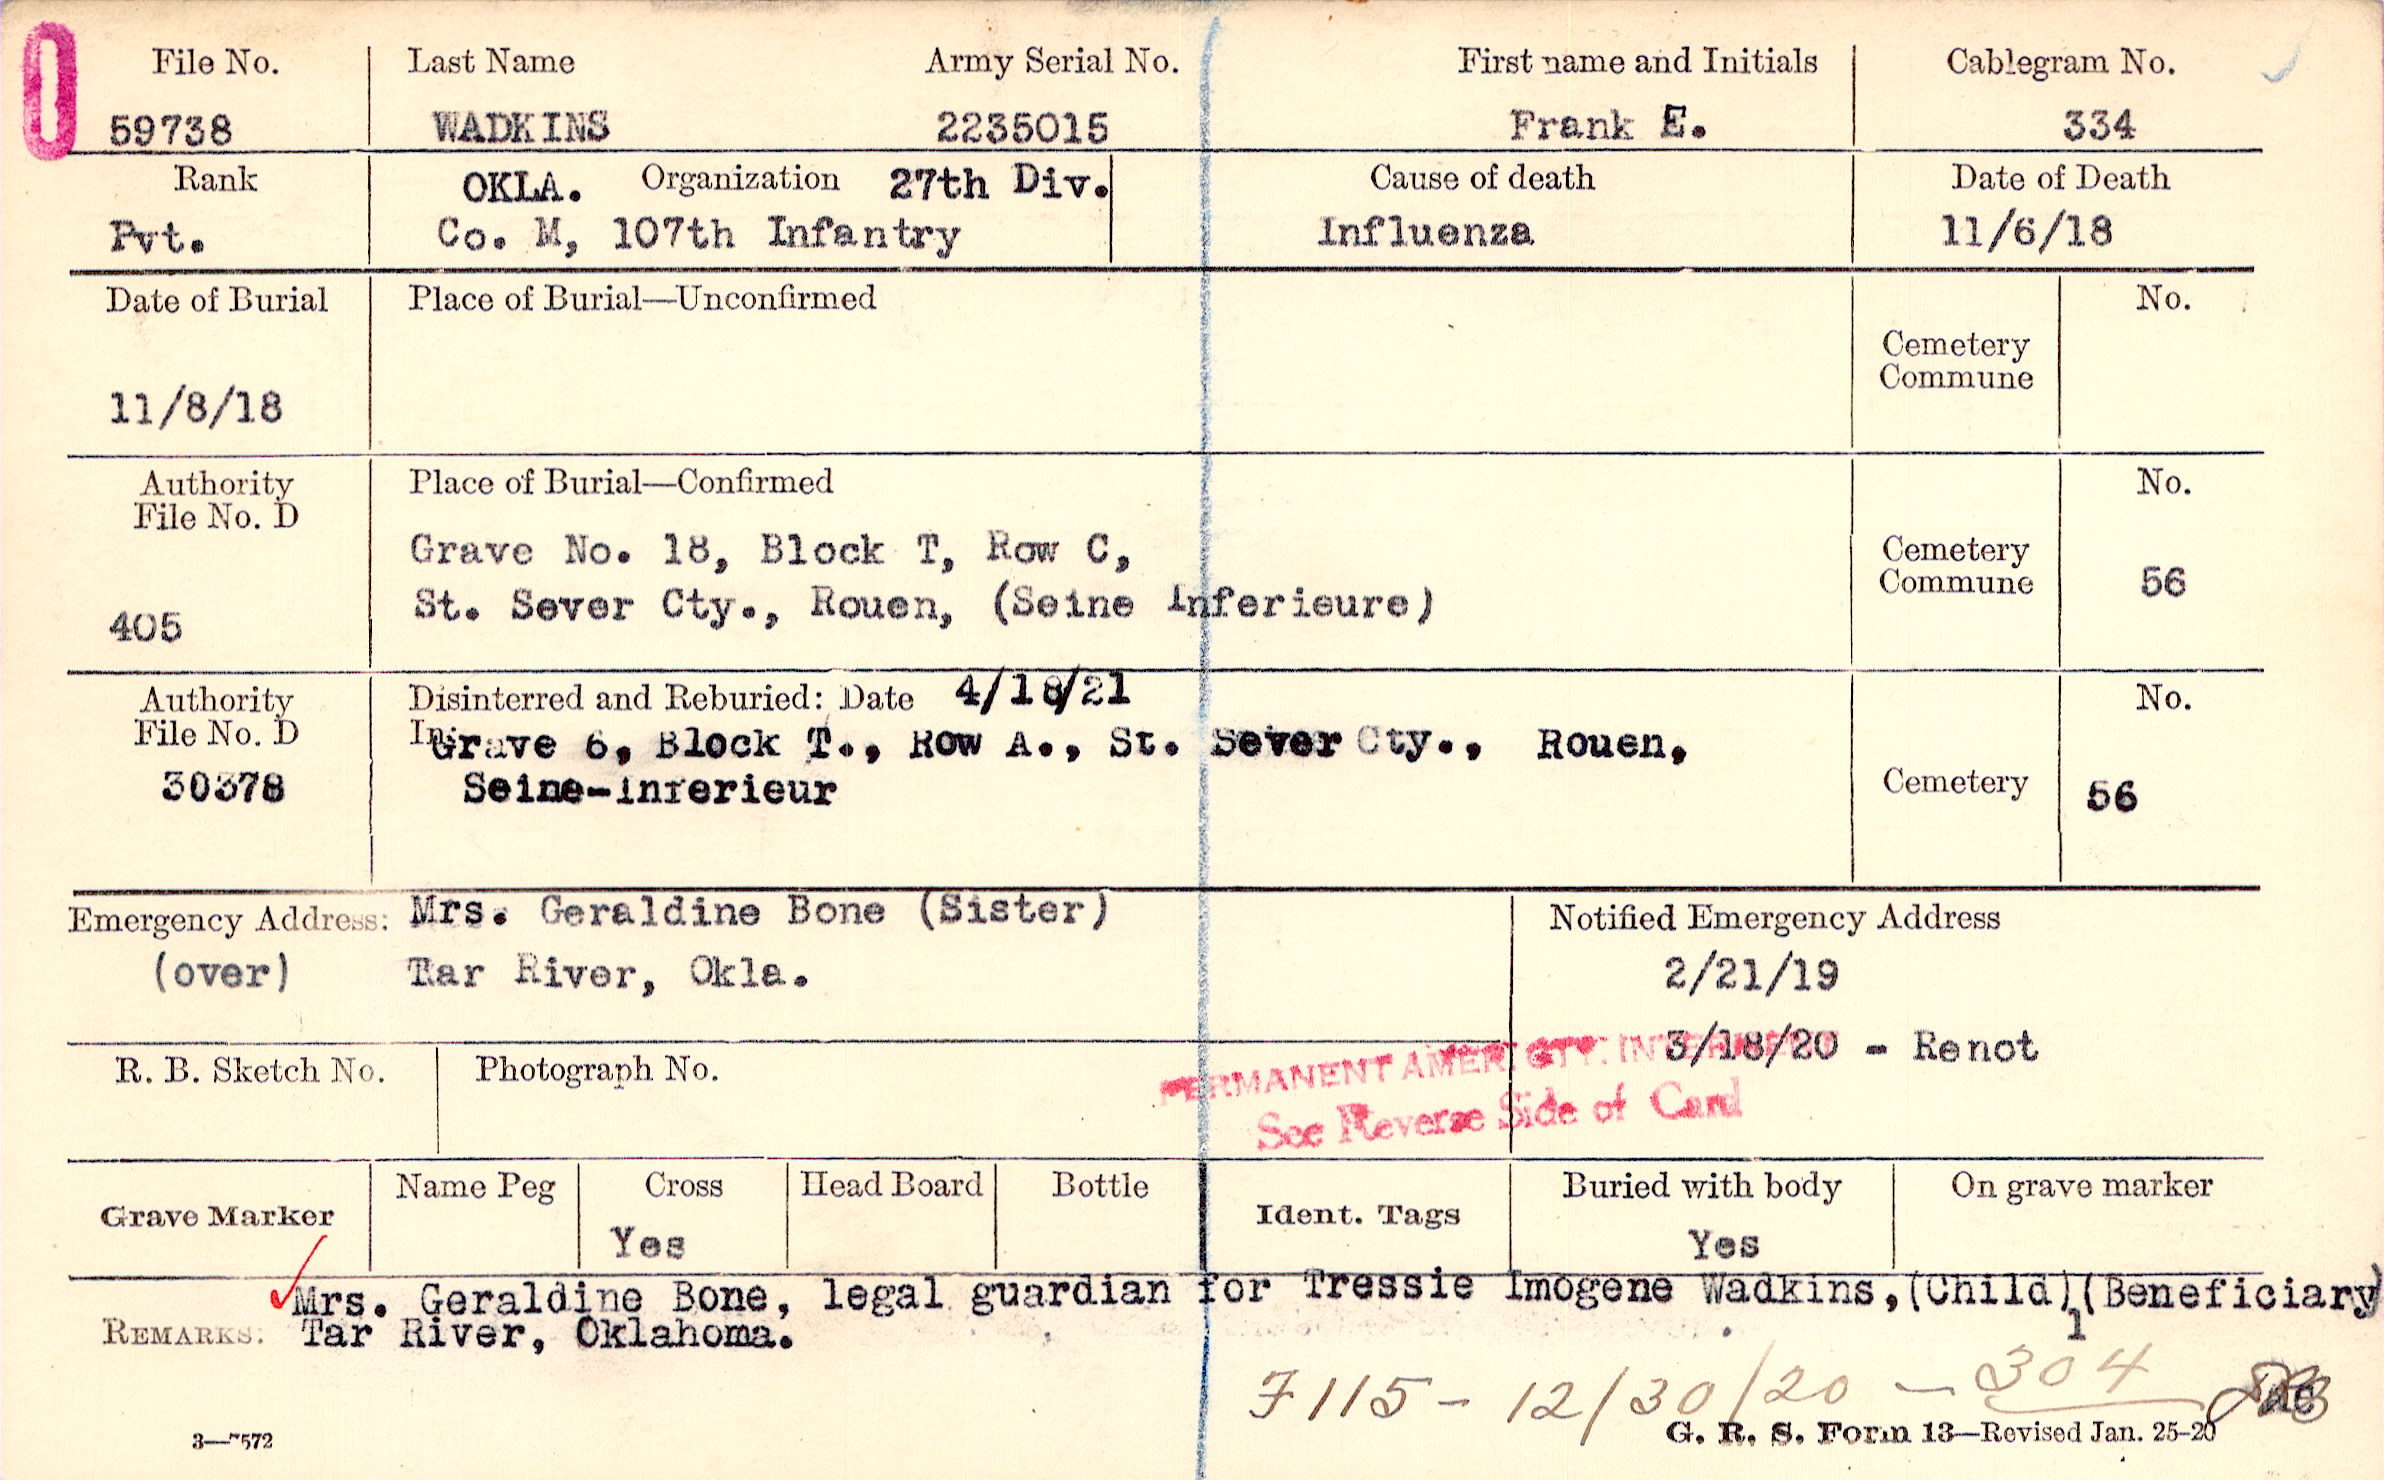 0
File No. Last Name Army Serial No. First name and Initials Cablegram No.
59738 WADKINS 2235015 Frank E. 334
Rank OKLA. Organization 27th Div. Cause of death Date of Death
Pvt. Co. M, 107th Infantry Influenza 11/6/18
Date of Burial Place of Burial—Unconfirmed No.
Cemetery
Commune
11/8/18
Authority Place of Burial—Confirmed No.
File No. D
Grave No. 18, Block T, Row C, Cemetery
Commune 56
St. Sever Cty., Rouen, (Seine Inferieure)
405
Authority Disinterred and Reburied: Date 4/18/21 No.
File No. D In Grave 6, Block T., Row A., St. Sever Cty., Rouen,
30378 Seine-Inferieur Cemetery 56
Emergency Address: Mrs. Geraldine Bone (Sister) Notified Emergency Address
(over) Tar River, Okla. 2/21/19
3/18/20 - Renot
R. B. Sketch No. Photograph No.
PERMANENT AMER. CTY. INTERMENT
See Reverse Side of Card
Name Peg Cross Head Board Bottle Buried with body On grave marker
Grave Marker Ident. Tags
Yes Yes
Mrs. Geraldine Bone, legal guardian for Tressie Imogene Wadkins,(Child)(Beneficiary)
REMARKS: Tar River, Oklahoma. 1
F115 - 12/30/20 - 304
3—7572 G. R. S. Form 13—Revised Jan. 25-20